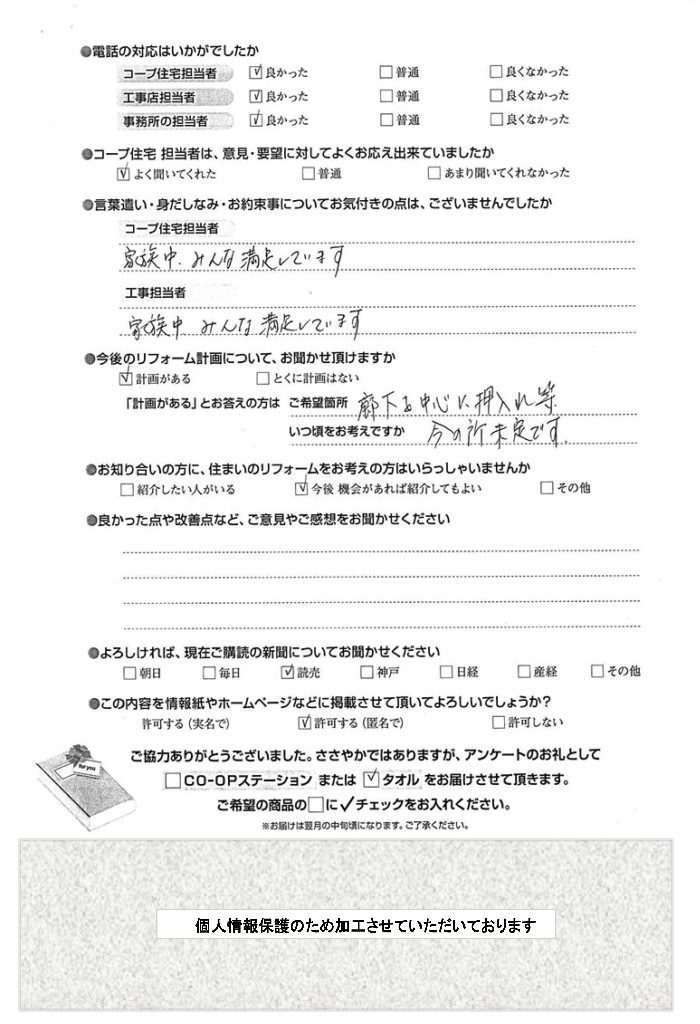 ●電話の対応はいかがでしたか
コープ住宅担当者 ☑良かった □普通 □良くなかった
工事店担当者 ☑良かった □普通 □良くなかった
事務所の担当者 ☑良かった □普通 □良くなかった
●コープ住宅 担当者は、意見・要望に対してよくお応え出来ていましたか
☑よく聞いてくれた □普通 □あまり聞いてくれなかった
●言葉遣い・身だしなみ・お約束事についてお気付きの点は、ございませんでしたか
コープ住宅担当者
家族中、みんな満足しています
工事担当者
家族中 みんな満足しています
●今後のリフォーム計画について、お聞かせ頂けますか
☑計画がある □とくに計画はない
「計画がある」とお答えの方は ご希望箇所 廊下を中心に押入れ等
いつ頃をお考えですか 今の所未定です。
●お知り合いの方に、住まいのリフォームをお考えの方はいらっしゃいませんか
□紹介したい人がいる ☑今後 機会があれば紹介してもよい □その他
●良かった点や改善点など、ご意見やご感想をお聞かせください
●よろしければ、現在ご購読の新聞についてお聞かせください
□朝日 □毎日 ☑読売 □神戸 □日経 □産経 □その他
●この内容を情報紙やホームページなどに掲載させて頂いてよろしいでしょうか?
許可する(実名で) ☑許可する(匿名で) □許可しない
for you
ご協力ありがとうございました。ささやかではありますが、アンケートのお礼として
□CO-OPステーション または ☑タオル をお届けさせて頂きます。
ご希望の商品の□に✓チェックをお入れください。
※お届けは翌月の中旬頃になります。ご了承ください。
個人情報保護のため加工させていただいております